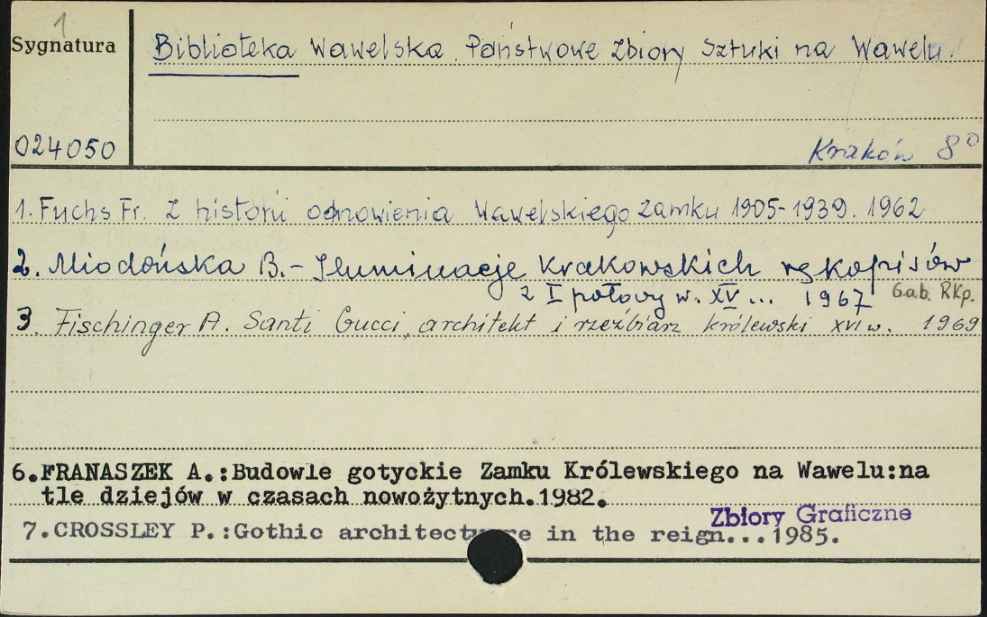 1
Sygnatura
Biblioteka Wawelska. Państwowe Zbiory Sztuki na Wawelu.
024050
Kraków 8°
1. Fuchs Fr. Z historii odnowienia Wawelskiego zamku 1905-1939. 1962
2. Miodońska B. - Iluminacje krakowskich rękopisów
z I połowy w. XV... 1967 Gab. Rkp.
3. Fischinger A. Santi Gucci, architekt i rzeźbiarz królewski XVI w. 1969
6.FRANASZEK A.:Budowle gotyckie Zamku Królewskiego na Wawelu:na
tle dziejów w czasach nowożytnych.1982.
Zbiory Graficzne
7.CROSSLEY P.:Gothic architecture in the reign...1985.